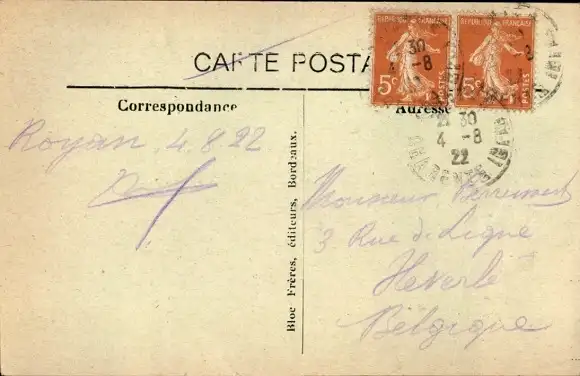 CARTE POSTA
Correspondance
Adresse
REPUBLIQUE FRANÇAISE
5c
POSTES
REPUBLIQUE FRANÇAISE
5c
POSTES
30
4 -8
30
4 -8
22
Royan 4.8.22
Monsieur
3 Rue de Ligne
Heverlé
Belgique
Bloc Frères, éditeurs, Bordeaux.